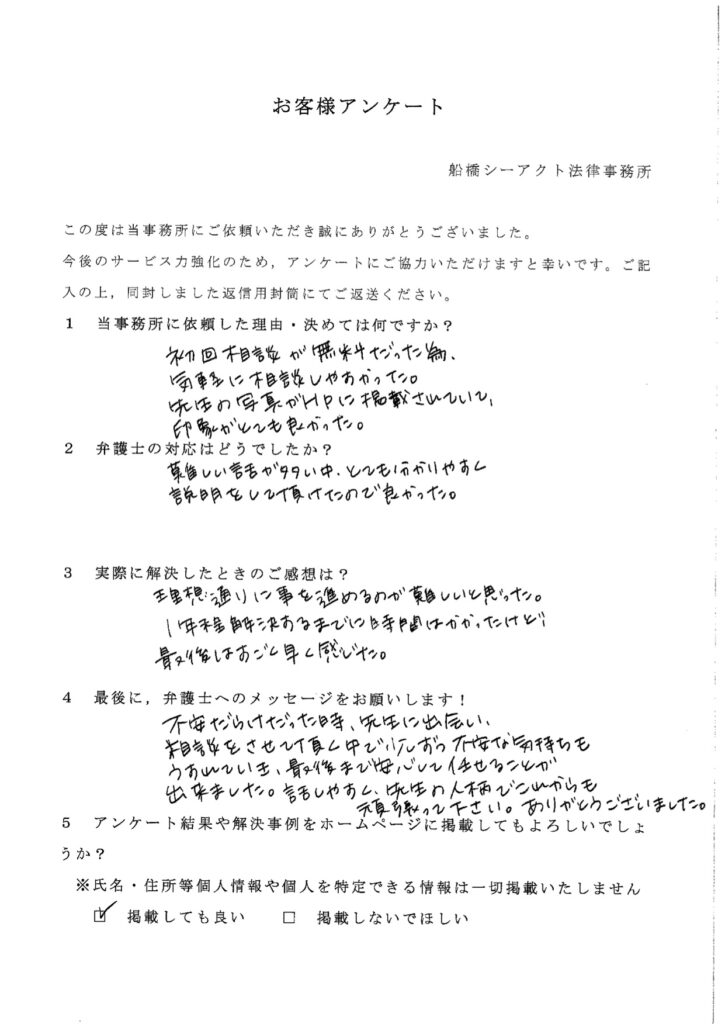 お客様アンケート
船橋シーアクト法律事務所
この度は当事務所にご依頼いただき誠にありがとうございました。
今後のサービス力強化のため，アンケートにご協力いただけますと幸いです。ご記
入の上，同封しました返信用封筒にてご返送ください。
1 当事務所に依頼した理由・決めては何ですか？
初回相談が無料だった為、
気軽に相談しやすかった。
先生の写真がHPに掲載されていて、
印象がとても良かった。
2 弁護士の対応はどうでしたか？
難しい話が多い中、とても分かりやすく
説明をして頂けたので良かった。
3 実際に解決したときのご感想は？
理想通りに事を進めるのが難しいと思った。
1年程解決するまでに時間はかかったけど
最後はすごく早く感じた。
4 最後に，弁護士へのメッセージをお願いします！
不安だらけだった時、先生に出会い、
相談をさせて頂く中で少しずつ不安な気持ちも
うすれていき、最後まで安心して任せることが
出来ました。話しやすく、先生の人柄でこれからも
頑張って下さい。ありがとうございました。
5 アンケート結果や解決事例をホームページに掲載してもよろしいでしょ
うか？
※氏名・住所等個人情報や個人を特定できる情報は一切掲載いたしません
☑ 掲載しても良い □ 掲載しないでほしい